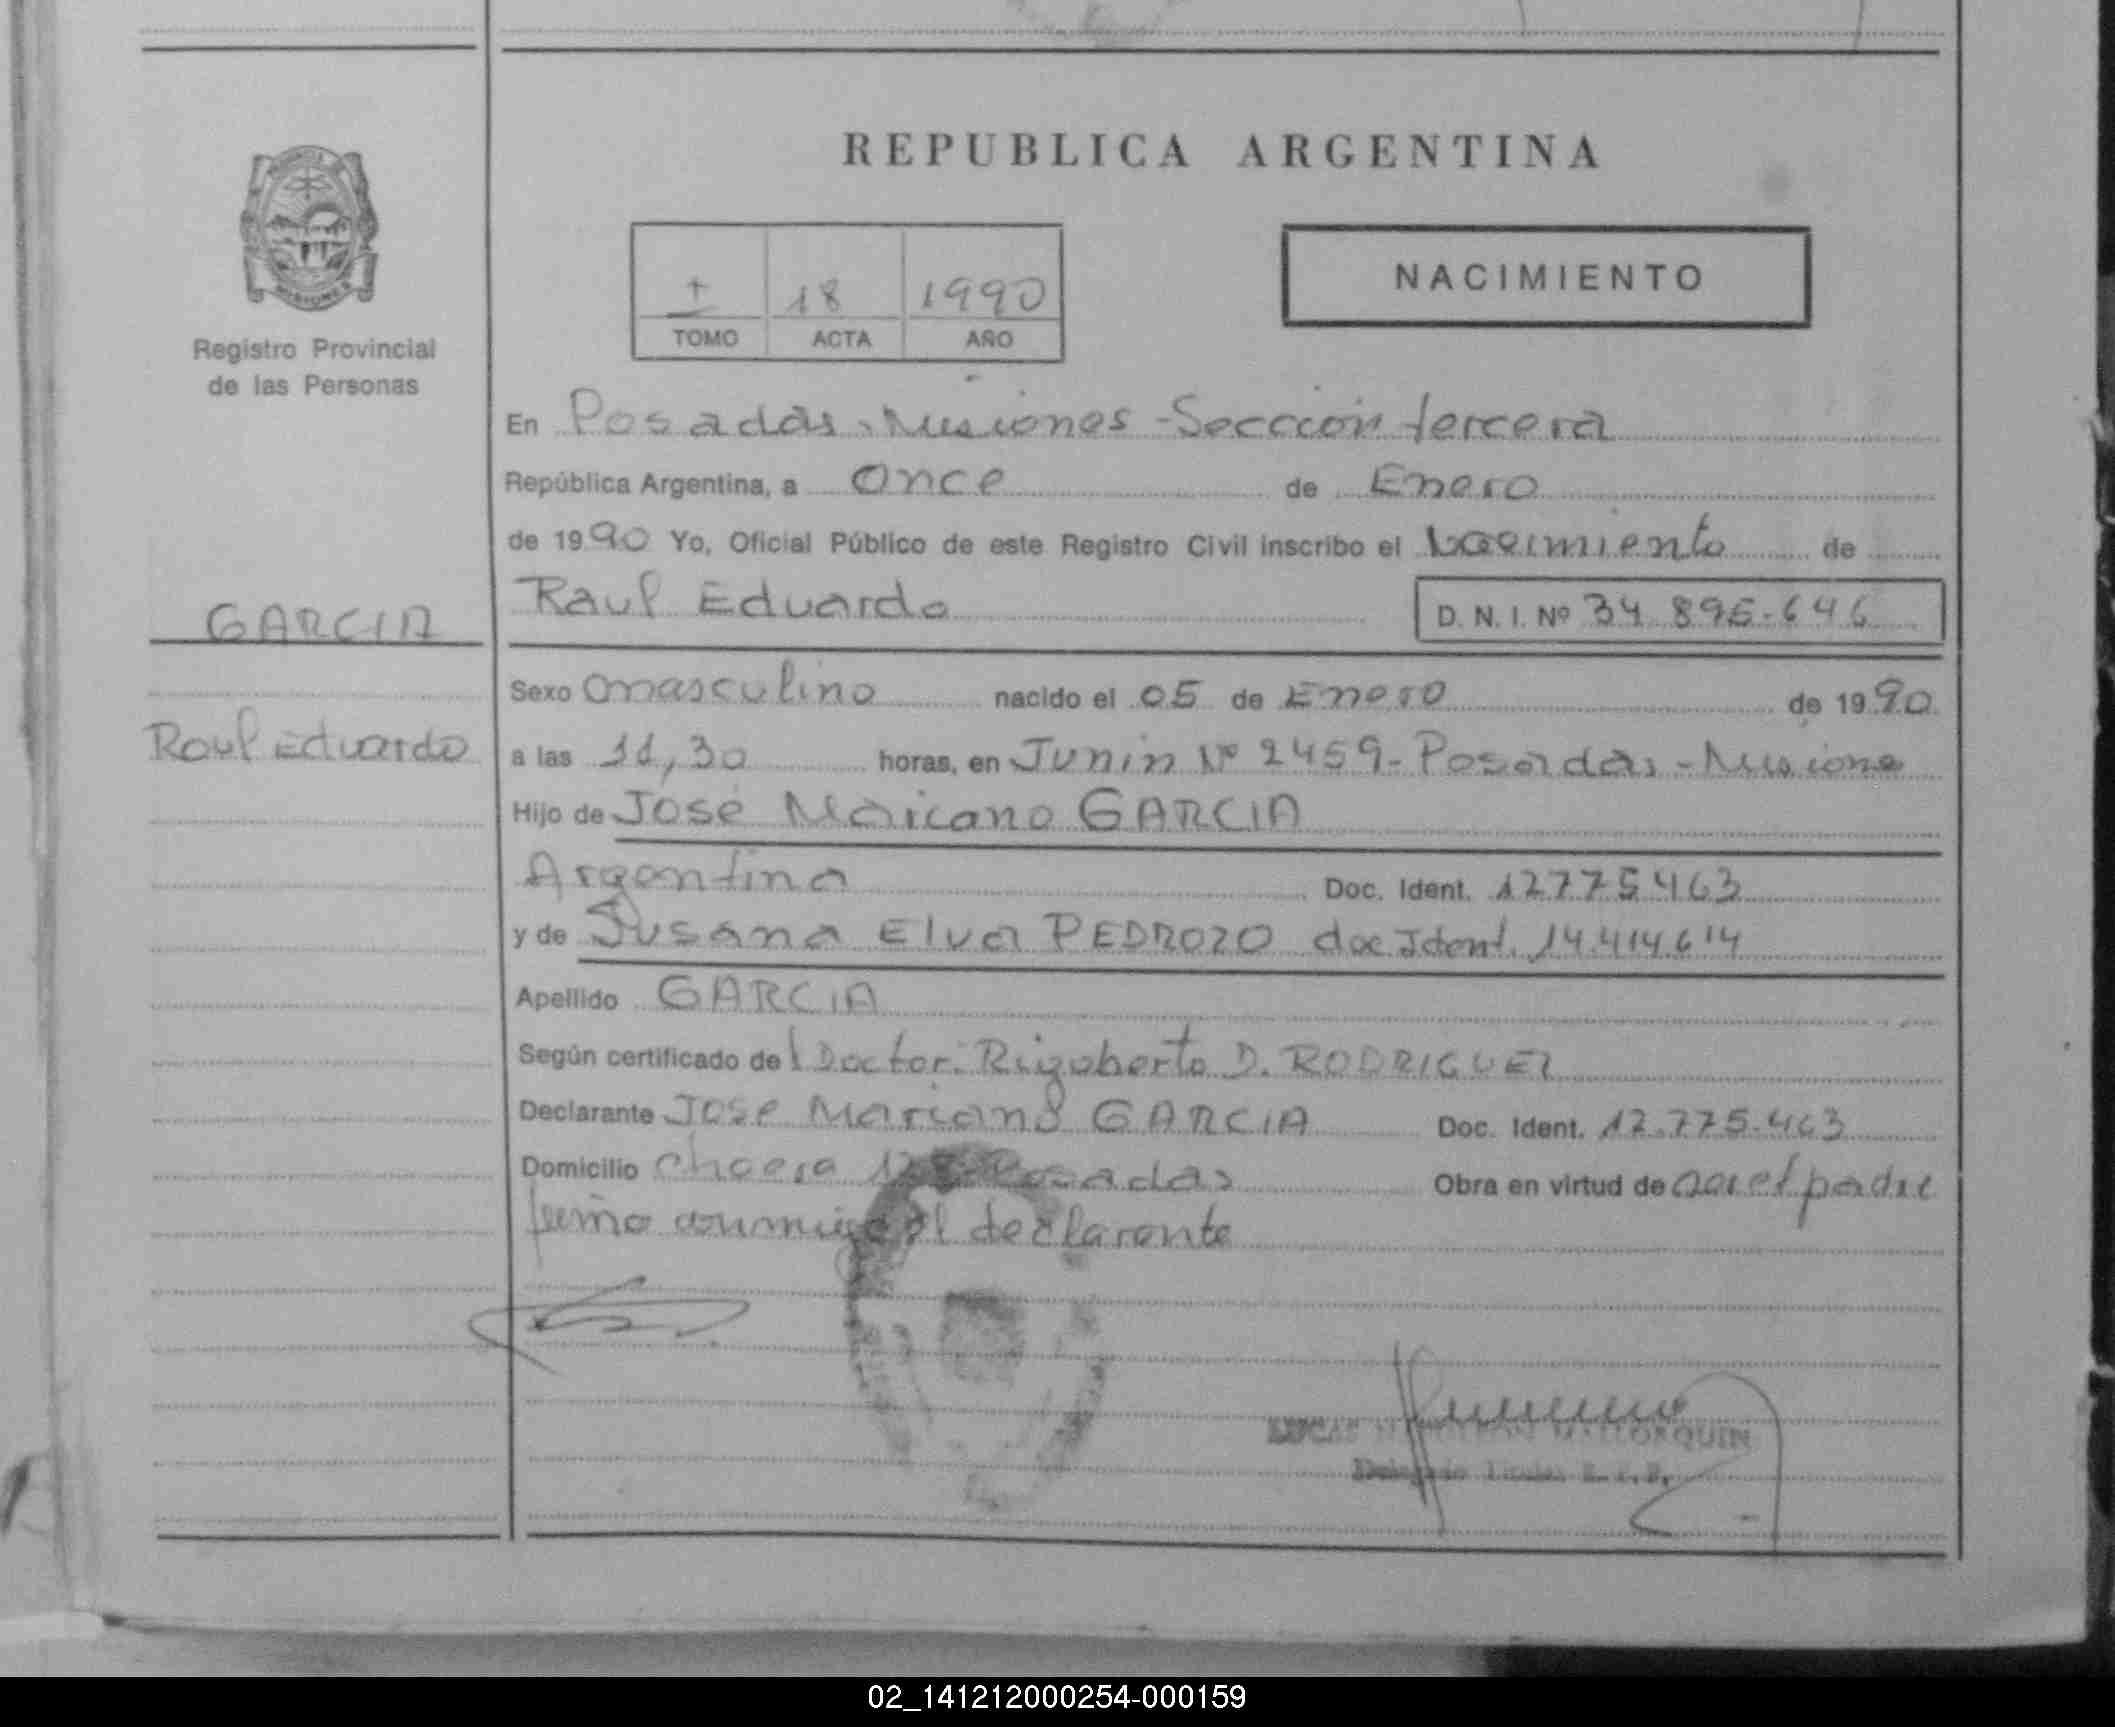 REPUBLICA ARGENTINA
MISIONES
Registro Provincial
de las Personas
18 1990
TOMO ACTA AÑO
NACIMIENTO
En Posadas - Misiones - Sección tercera
República Argentina, a Once de Enero
de 1990 Yo, Oficial Público de este Registro Civil inscribo el nacimiento de
GARCIA
Raul Eduardo
D. N. I. Nº 34.895.646
Sexo masculino nacido el 05 de Enero de 1990
Raul Eduardo
a las 11,30 horas, en Junin Nº 2459 - Posadas - Misiones
Hijo de José Mariano GARCIA
Argentina Doc. Ident. 12775463
y de Susana Elva PEDROZO doc Ident. 14.414.614
Apellido GARCIA
Según certificado del Doctor: Rigoberto D. RODRIGUEZ
Declarante José Mariano GARCIA Doc. Ident. 12.775.463
Domicilio Chacra Posadas Obra en virtud de ser el padre
firma conmigo el declarante
LUCAS MALLORQUIN
Delegado Titular R. P. P.
02_141212000254-000159